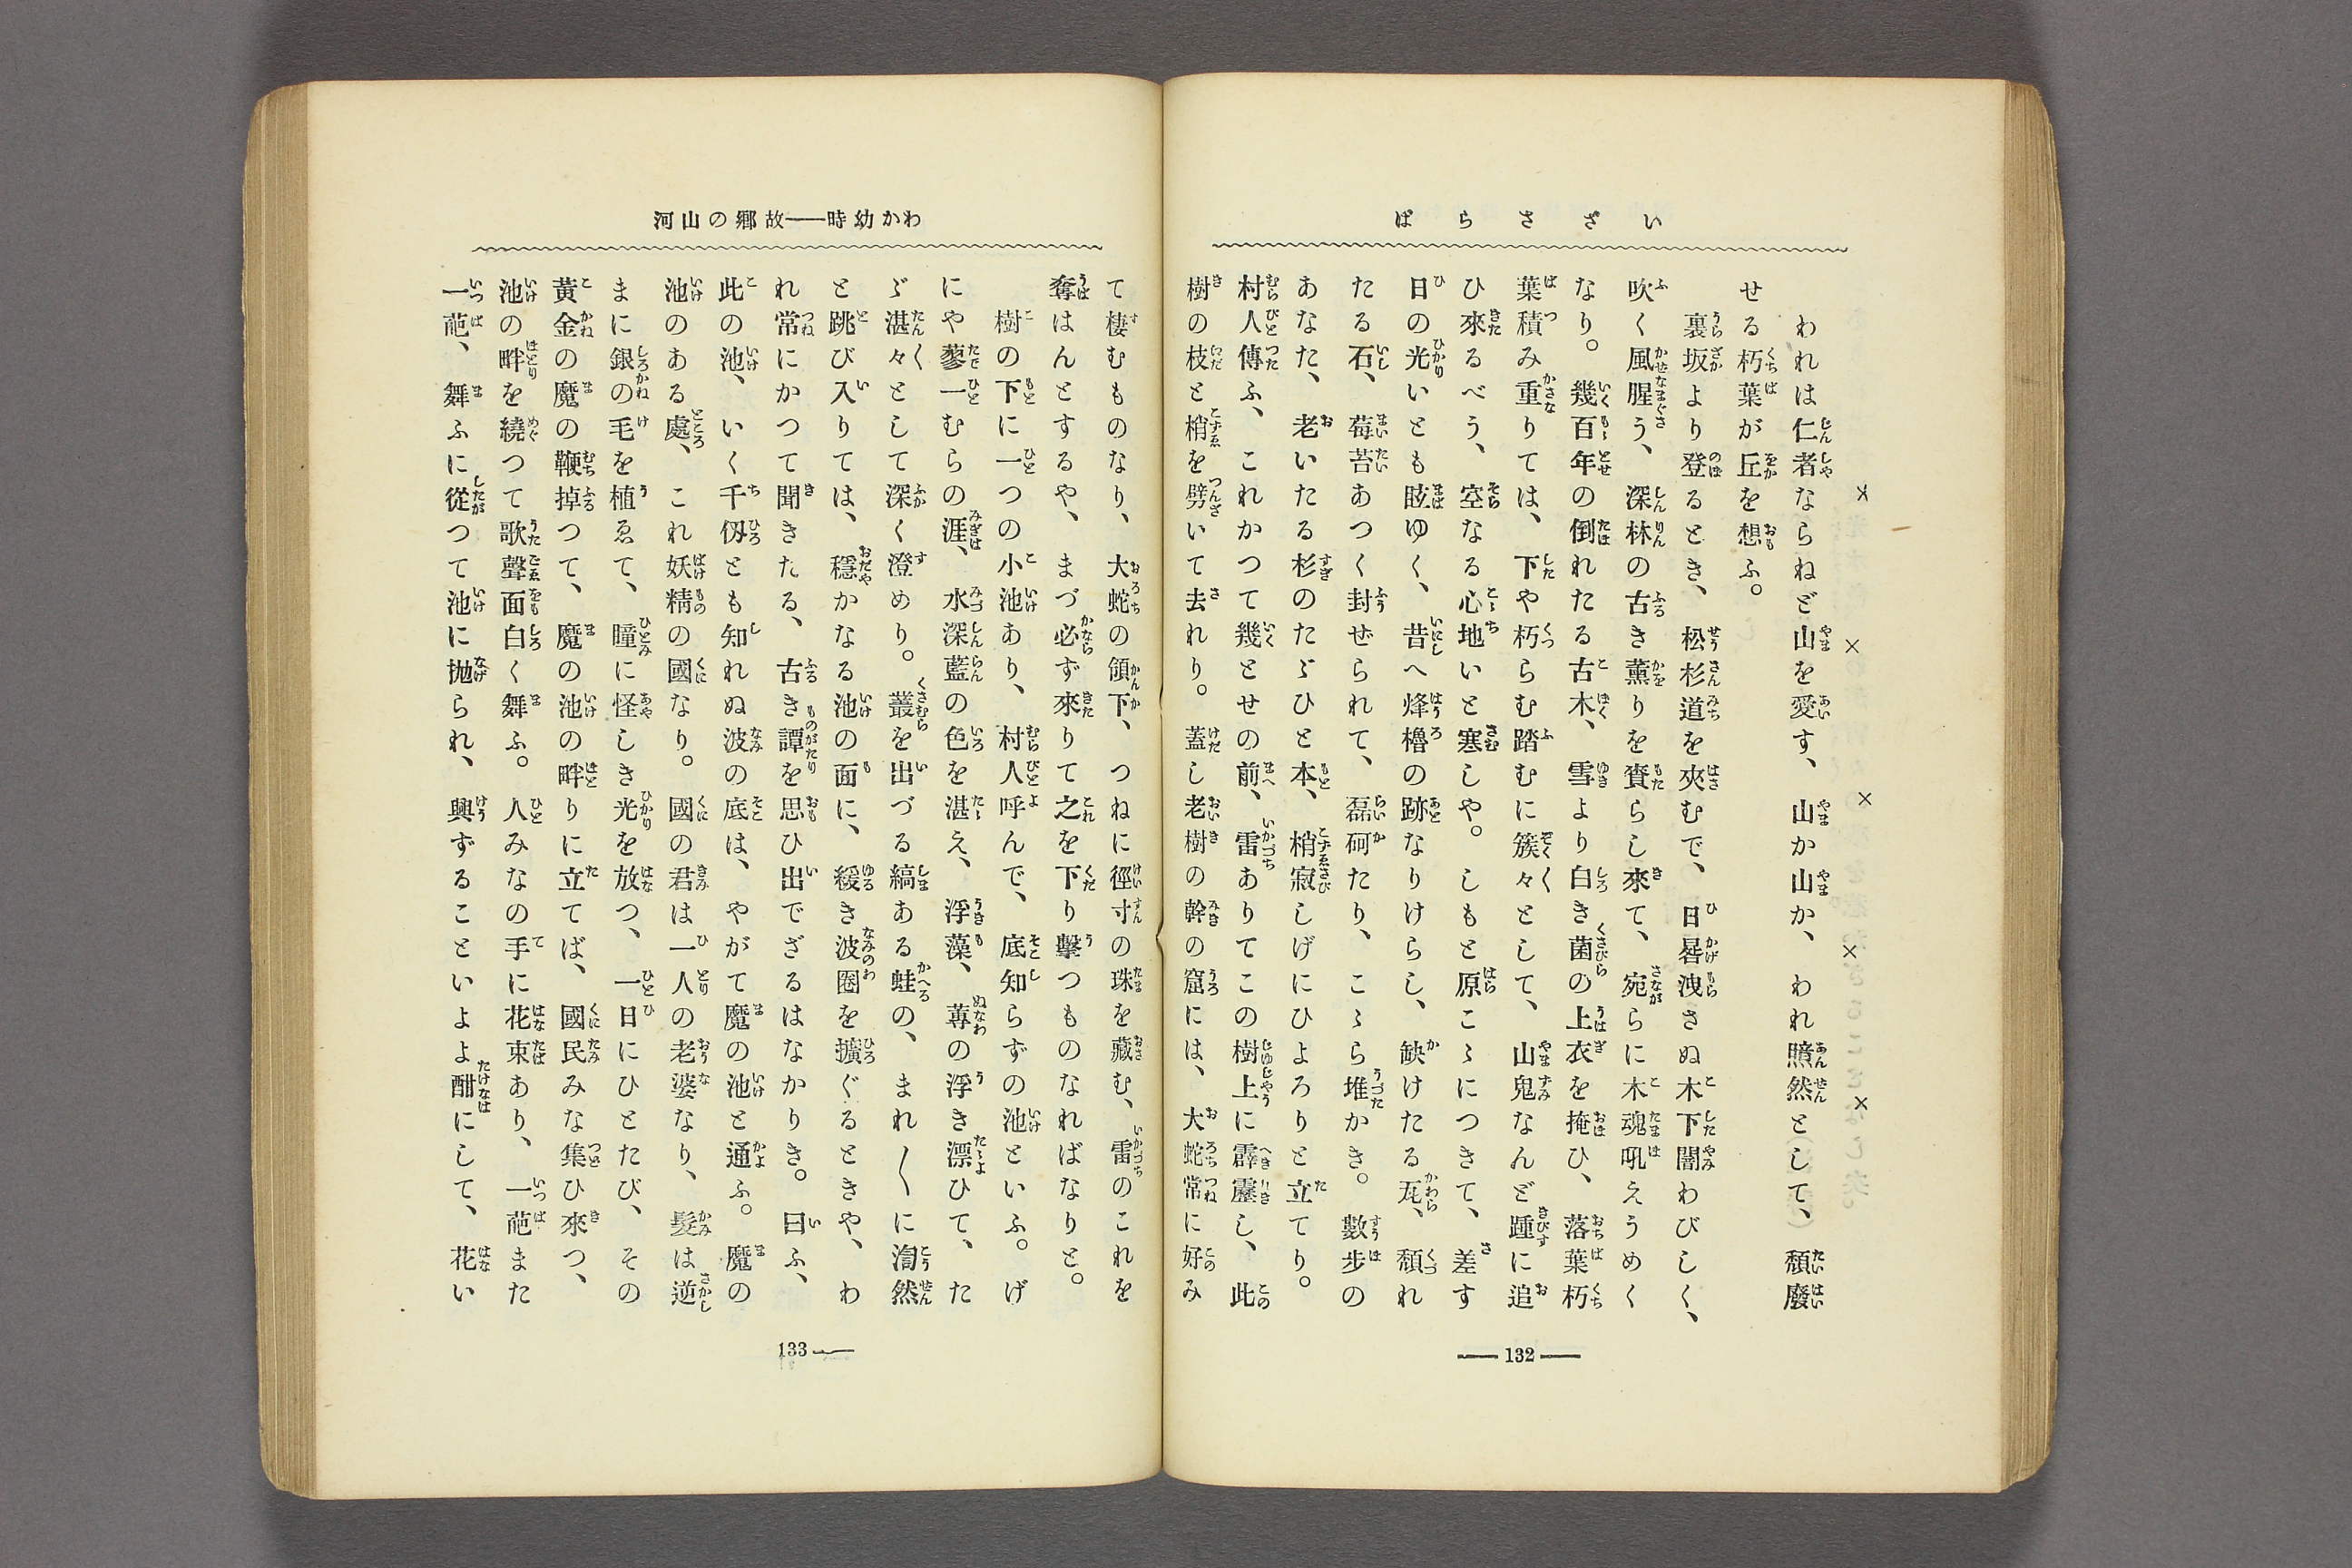 いざさらば
×　×　×　×　×
われは仁者ならねど山を愛す、山か山か、われ黯然として、頽廢
せる朽葉が丘を想ふ。
裏坂より登るとき、松杉道を夾むで、日晷洩さぬ木下闇わびしく、
吹く風腥う、深林の古き薫りを賚らし來て、宛らに木魂吼えうめく
なり。幾百年の倒れたる古木、雪より白き菌の上衣を掩ひ、落葉朽
葉積み重りては、下や朽らむ踏むに簇々として、山鬼なんど踵に追
ひ來るべう、空なる心地いと寒しや。しもと原こゝにつきて、差す
日の光いとも眩ゆく、昔へ烽櫓の跡なりけらし、缺けたる瓦、頽れ
たる石、莓苔あつく封ぜられて、磊砢たり、こゝら堆かき。數步の
あなた、老いたる杉のたゞひと本、梢寂しげにひよろりと立てり。
村人傳ふ、これかつて幾とせの前、雷ありてこの樹上に霹靂し、此
樹の枝と梢を劈いて去れり。蓋し老樹の幹の窟には、大蛇常に好み
132
わが幼時――故鄕の山河
て棲むものなり、大蛇の頷下、つねに徑寸の珠を藏む、雷のこれを
奪はんとするや、まづ必ず來りて之を下り擊つものなればなりと。
樹の下に一つの小池あり、村人呼んで、底知らずの池といふ。げ
にや蓼一むらの涯、水深藍の色を湛え、浮藻、蓴の浮き漂ひて、た
ゞ湛々として深く澄めり。叢を出づる縞ある蛙の、まれ〳〵に淘然
と跳び入りては、穩かなる池の面に、緩き波圈を擴ぐるときや、わ
れ常にかつて聞きたる、古き譚を思ひ出でざるはなかりき。曰ふ、
此の池、いく千仭とも知れぬ波の底は、やがて魔の池と通ふ。魔の
池のある處、これ妖精の國なり。國の君は一人の老婆なり、髮は逆
まに銀の毛を植ゑて、瞳に怪しき光を放つ、一日にひとたび、その
黃金の魔の鞭掉つて、魔の池の畔りに立てば、國民みな集ひ來つ、
池の畔を繞つて歌聲面白く舞ふ。人みなの手に花束あり、一葩また
一葩、舞ふに從つて池に抛られ、興ずることいよよ酣にして、花い
133